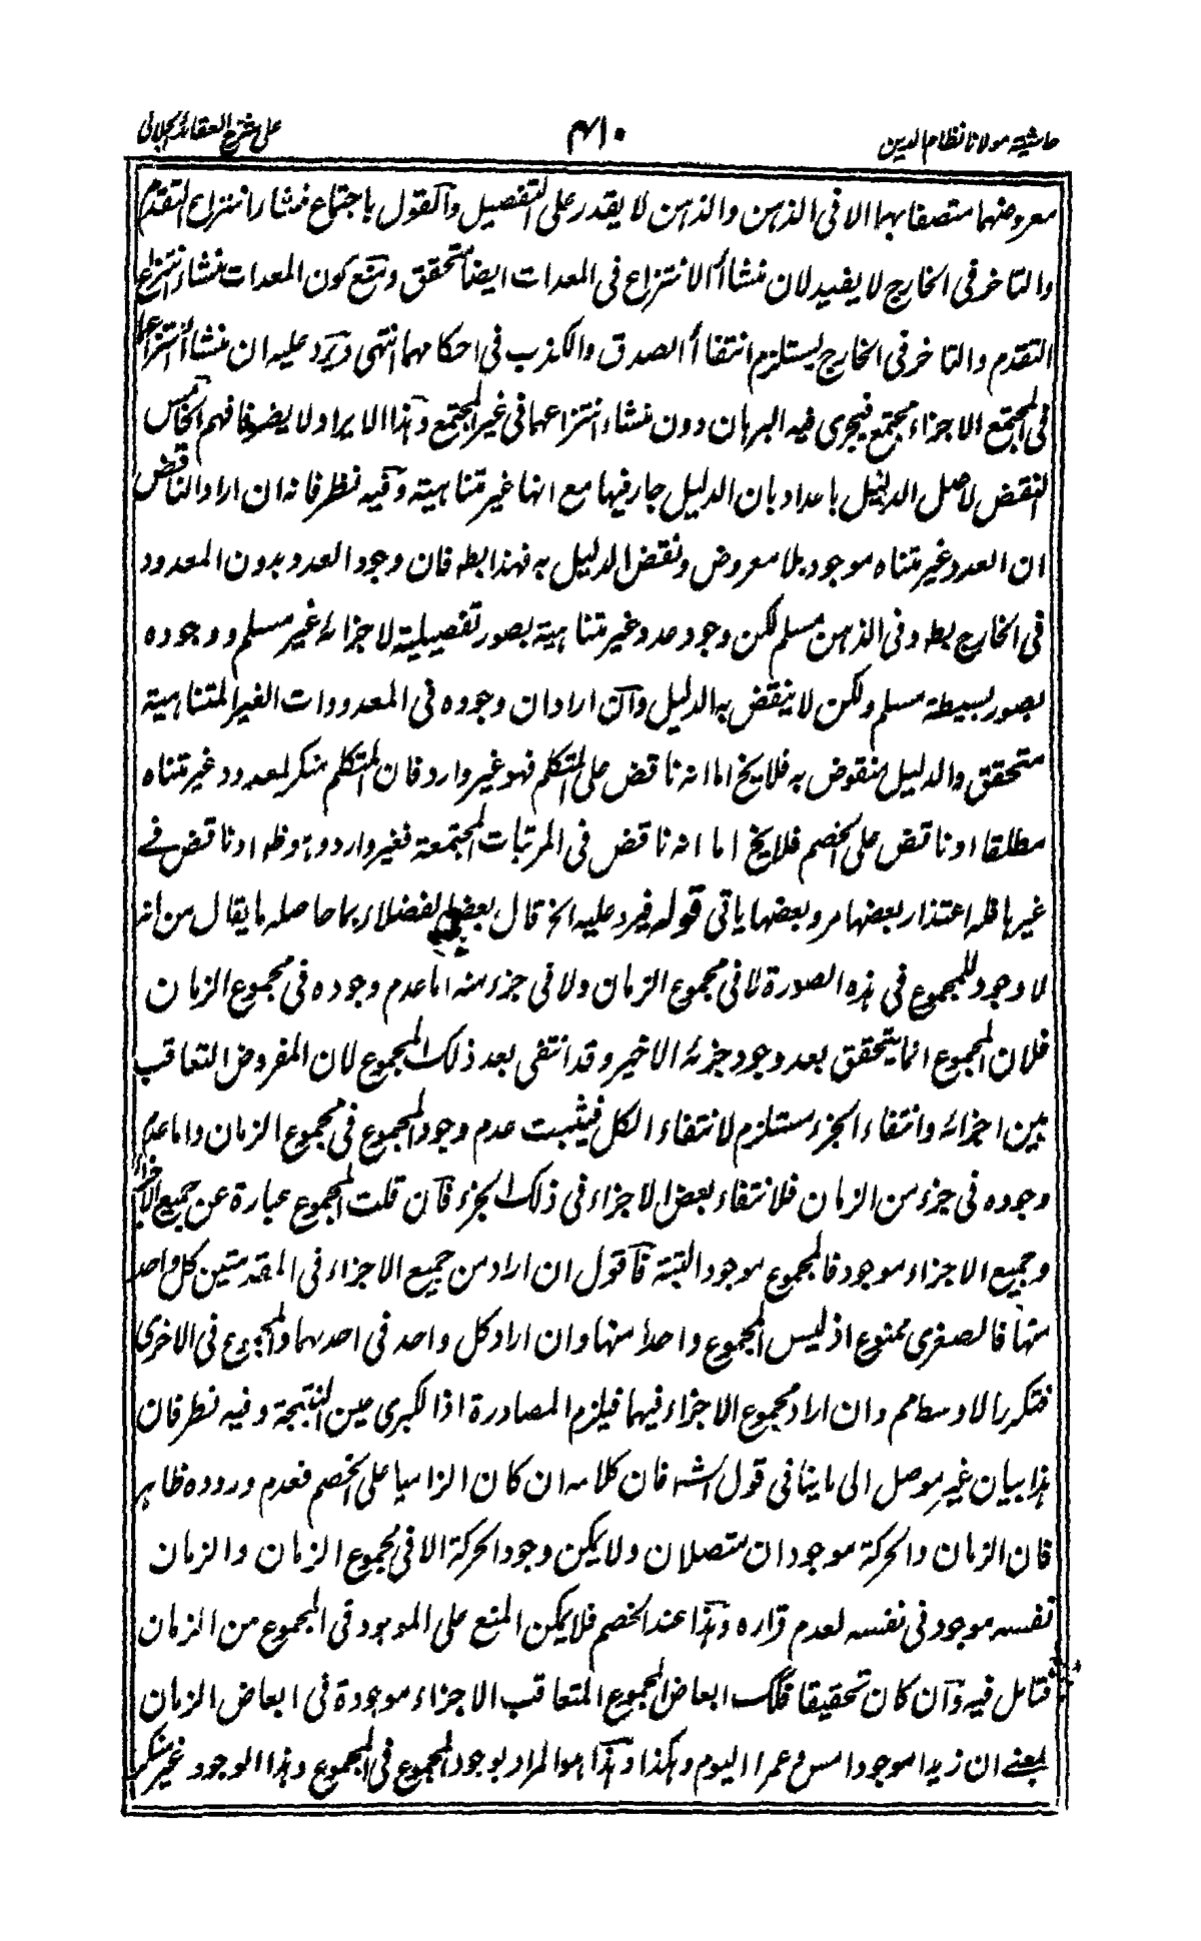 حاشیة مولانا نظام الدین
۴۱۰
علی شرح العقائد الجلالی
معروضهما متصفا بهما الا فی الذهن والذهن لا یقدر علی التفصیل والقول باجتماع منشأ انتزاع التقدم
والتاخر فی الخارج لا یفید لان منشأ الانتزاع فی المعدات ایضا متحقق ومنع کون المعدات منشاء انتزاع
التقدم والتاخر فی الخارج یستلزم انتفاء الصدق والکذب فی احکامهما انتهی ویرد علیه ان منشأ انتزاعهما
فی المجتمع الاجزاء مجتمع فیجری فیه البرهان دون منشاء انتزاعهما فی غیر المجتمع وهذا الایراد لا یضرنا فافهم الخامس
النقض لاصل الدلیل باعداد بان الدلیل جار فیها مع انها غیر متناهیة وفیه نظر فانه ان اراد الناقض
ان العدد غیر متناه موجود بلا معروض ونقض الدلیل به فهذا بط فان وجود العدد بدون المعدود
فی الخارج بط وفی الذهن مسلم لکن وجود عدد غیر متناهیة بصور تفصیلیة لاجزائه غیر مسلم ووجوده
بصور بسیطة مسلم ولکن لا ینقض به الدلیل وان اراد ان وجوده فی المعدودات الغیر المتناهیة
متحقق والدلیل منقوض به فلا یخ اما انه ناقض علی المتکلم فهو غیر وارد فان المتکلم منکر لمعدود غیر متناه
مطلقا او ناقض علی الخصم فلا یخ اما انه ناقض فی المرتبات المجتمعة فغیر وارد وهو ظ او ناقض فے
غیرها فله اعتذار بعضها مر وبعضها یاتی قوله فیرد علیه الخ قال بعض الفضلاء بما حاصله ما یقال من انه
لا وجود للمجموع فی هذه الصورة لا فی مجموع الزمان ولا فی جزء منه اما عدم وجوده فی مجموع الزمان
فلان المجموع انما یتحقق بعد وجود جزئه الاخیر وقد انتفی بعد ذلک المجموع لان المفروض التعاقب
بین اجزائه وانتفاء الجزء مستلزم لانتفاء الکل فیثبت عدم وجود المجموع فی مجموع الزمان واما عدم
وجوده فی جزء من الزمان فلانتفاء بعض الاجزاء فی ذلک الجزء فان قلت المجموع عبارة عن جمیع الاجزاء
وجمیع الاجزاء موجود فالمجموع موجود البتة فاقول ان اراد من جمیع الاجزاء فی المقدمتین کل واحد
منها فالصغری ممنوع اذ لیس المجموع واحدا منها وان اراد کل واحد فی احدهما والمجموع فی الاخری
فتکرر الاوسط مم وان اراد مجموع الاجزاء فیهما فیلزم المصادرة اذا لکبری عین النتیجة وفیه نظر فان
هذا بیان غیر موصل الی ما ینافی قول الشه فان کلامه ان کان الزامیا علی الخصم فعدم وروده ظاهر
فان الزمان والحرکة موجودان متصلان ولا یمکن وجود الحرکة الا فی مجموع الزمان والزمان
نفسه موجود فی نفسه لعدم قراره وهذا عند الخصم فلا یمکن المنع علی الموجود فی المجموع من الزمان
فتامل فیه وان کان تحقیقا فلک ابعاض المجموع المتعاقب الاجزاء موجودة فی ابعاض الزمان
بمعنے ان زیدا موجود امس وعمرا الیوم وهکذا وهذا هو المراد بوجود المجموع فی المجموع وهذا الوجود غیر منکر